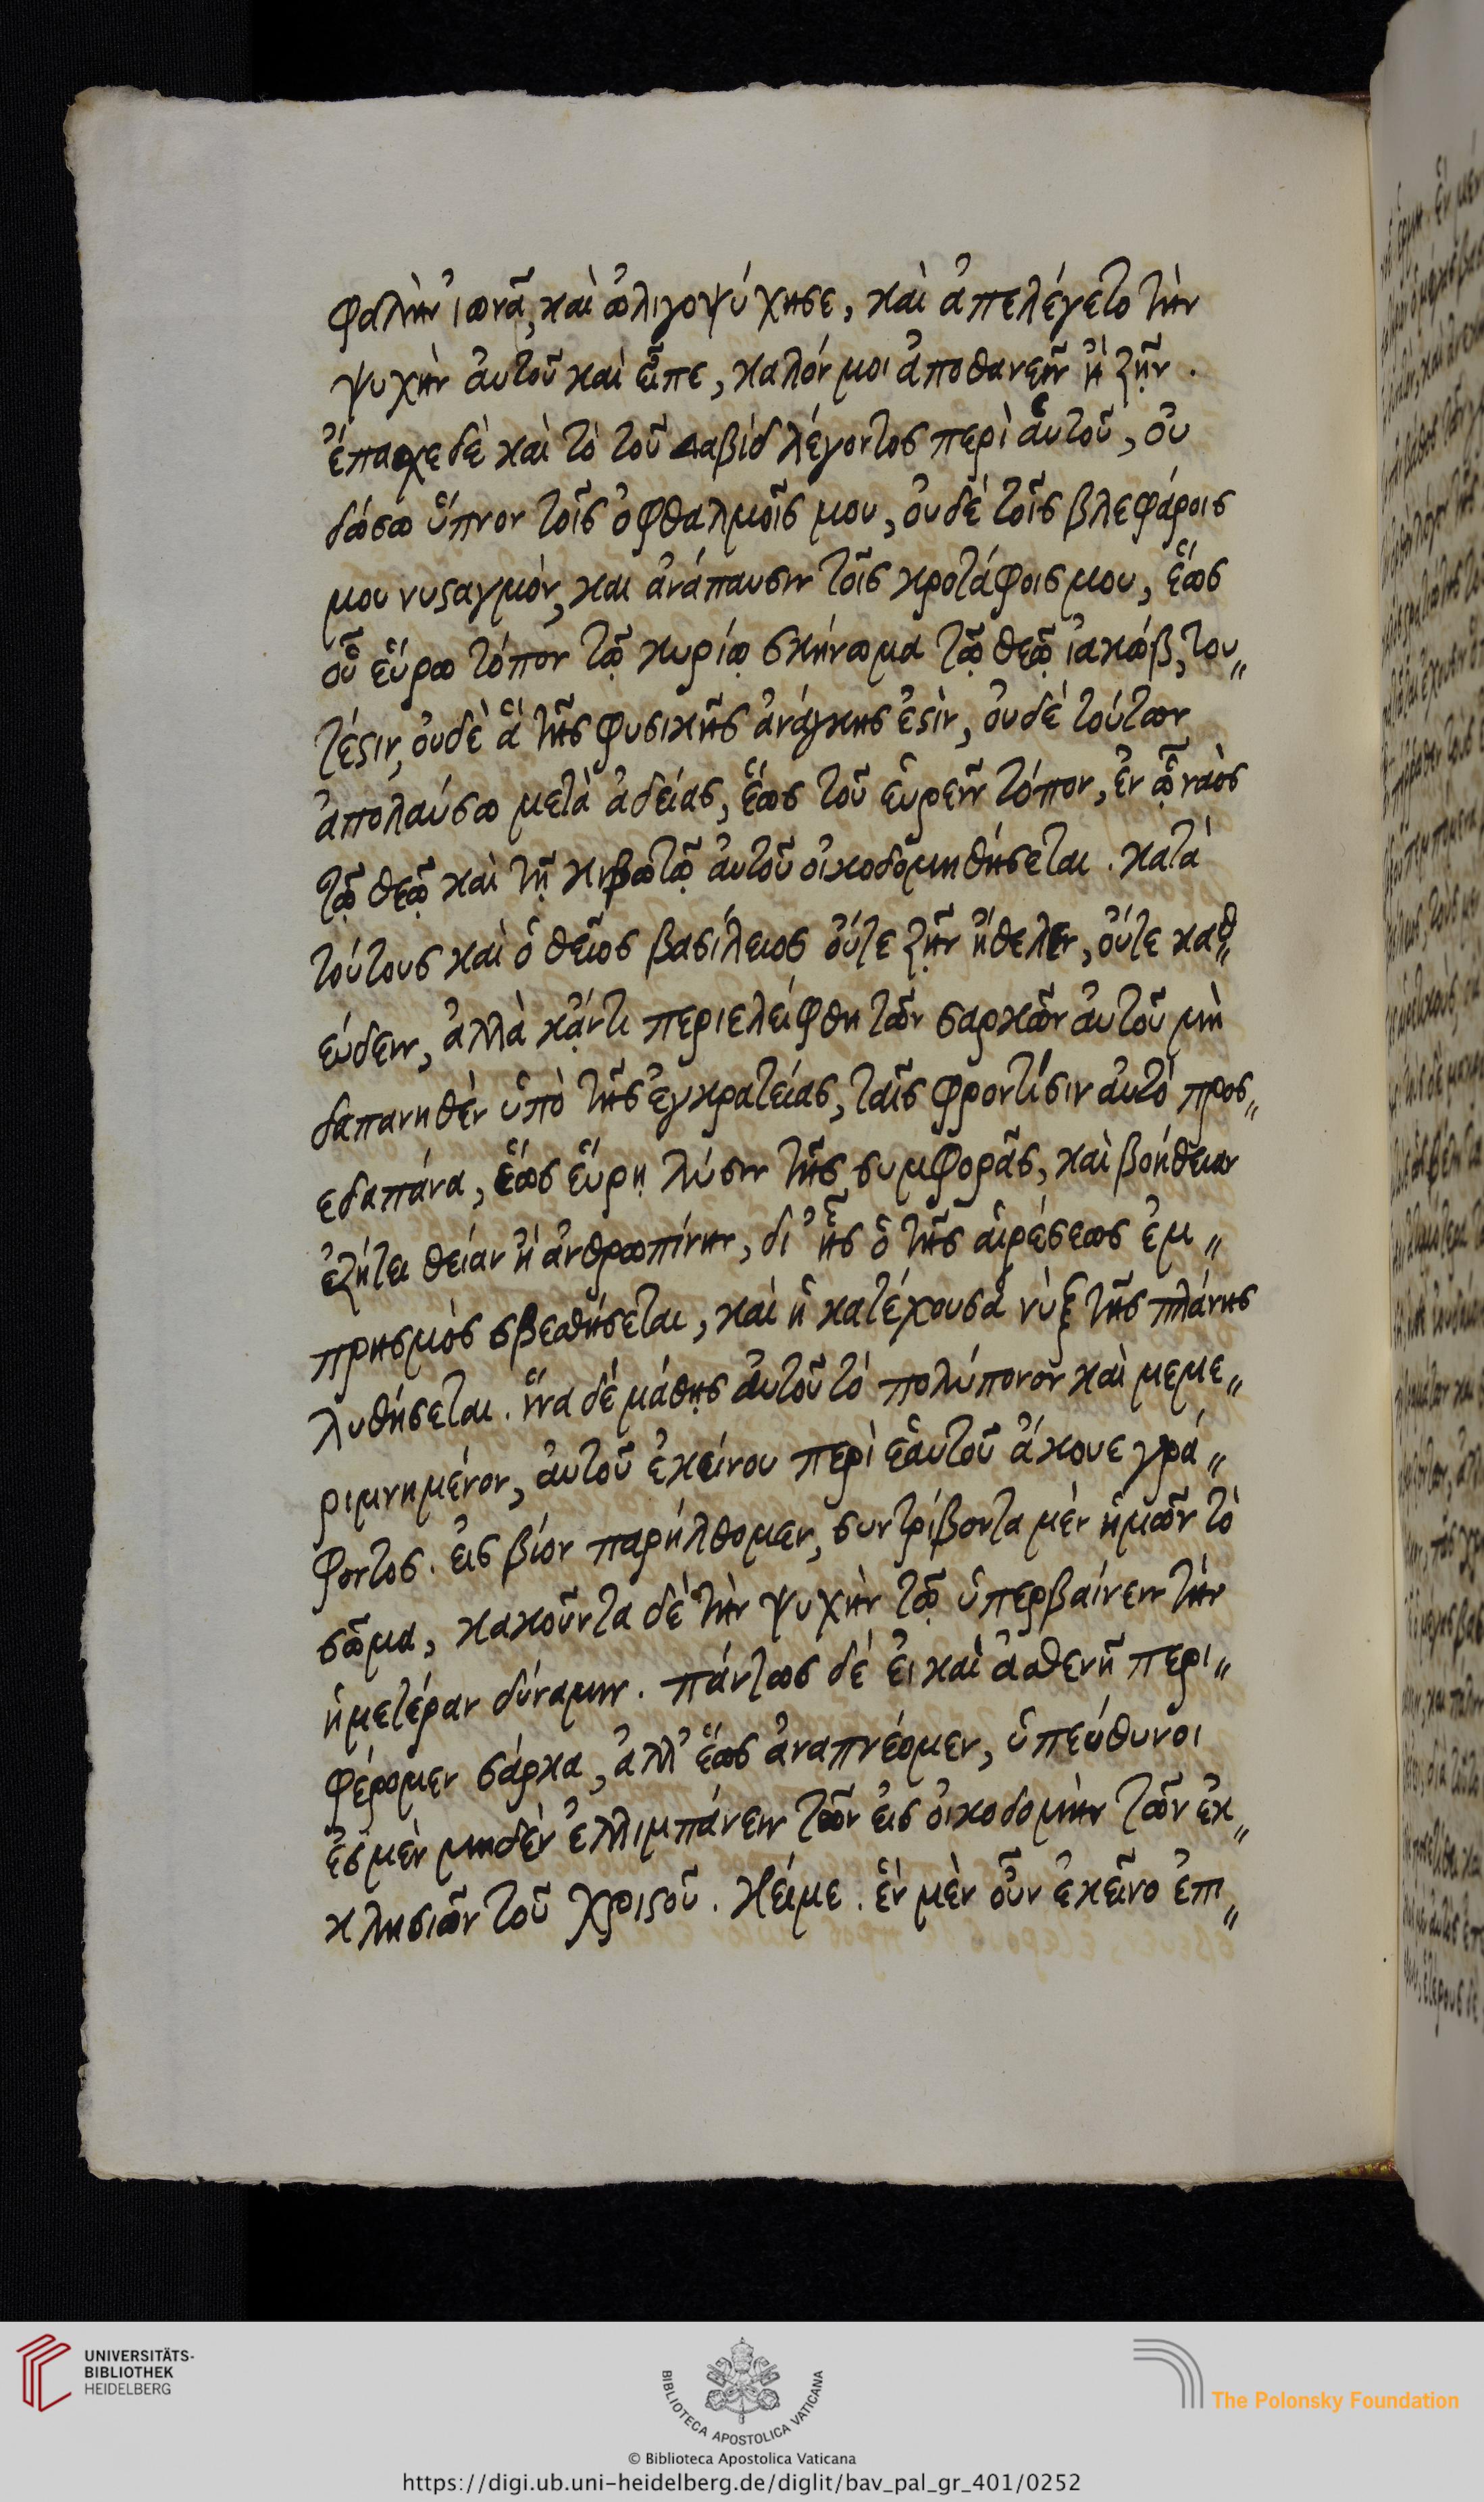 φαλὴν ἰωνᾶ, καὶ ὠλιγοψύχησε, καὶ ἀπελέγετο τὴν
ψυχὴν ἀυτοῦ καὶ εἶπε, καλόν μοι ἀποθανεῖν ἢ ζῆν.
ἔπασχε δὲ καὶ τὸ τοῦ Δαβὶδ λέγοντος περὶ ἁυτοῦ, ὀυ
δώσω ὕπνον τοῖς ὀφθαλμοῖς μου, ὀυδὲ τοῖς βλεφάροις
μου νυϛαγμὸν, και ἀνάπαυσιν τοῖς κροτάφοις μου, ἕως
οὗ εὕρω τόπον τῷ κυρίῳ σκήνωμα τῷ θεῷ ἰακώβ, του〃
τέϛιν, ὀυδὲ ἃ τῆς φυσικῆς ἀνάγκης ἐϛὶν, ὀυδὲ τούτων
ἀπολαύσω μετὰ ἀδείας, ἕως τοῦ ἑυρεῖν τόπον, ἐν ᾧ ναὸς
τῷ θεῷ καὶ τῇ κιβωτῷ ἀυτοῦ οἰκοδομηθήσεται. κατὰ
τούτους καὶ ὁ θεῖος βασίλειος οὔτε ζῆν ἤθελεν, οὔτε καθ〃
εύδειν, ἀλλὰ κἄν τι περιελείφθη τῶν σαρκῶν ἀυτοῦ μὴ
δαπανηθὲν ὑπὸ τῆς ἐγκρατείας, ταῖς φροντίσιν ἀυτὸ προς〃
εδαπάνα, ἕως εὕρῃ λύσιν τῆς συμφορᾶς, καὶ βοήθειαν
ἐζήτει θείαν ἢ ἀνθρωπίνην, δι᾽ ἧς ὁ τῆς αἱρέσεως ἐμ〃
πρησμὸς σβεσθήσεται, καὶ ἡ κατέχουσα νὺξ τῆς πλάνης
λυθήσεται. ἵνα δὲ μάθῃς ἀυτοῦ τὸ πολύπονον καὶ μεμε〃
ριμνημένον, ἀυτοῦ ἐκείνου περὶ ἑαυτοῦ ἄκουε γρά〃
φοντος. ἐις βίον παρήλθομεν, συντρίβοντα μὲν ἡμῶν τὸ
σῶμα, κακοῦντα δὲ τὴν ψυχὴν τῷ ὑπερβαίνειν τὴν
ἡμετέραν δύναμιν. πάντως δὲ ἐι καὶ ἀσθενῆ περι〃
φέρομεν σάρκα, ἀλλ᾽ ἕως ἀναπνέομεν, ὑπεύθυνοι
ἐσμὲν μηδὲν ἐλλιμπάνειν τῶν ἐις ὀικοδομὴν τῶν ἐκ〃
κλησιῶν τοῦ χριϛοῦ. κείμε. ἓν μὲν οὖν ἐκεῖνο ἐπι〃
UNIVERSITÄTS-
BIBLIOTHEK
HEIDELBERG
BIBLIOTECA APOSTOLICA VATICANA
The Polonsky Foundation
© Biblioteca Apostolica Vaticana
https://digi.ub.uni-heidelberg.de/diglit/bav_pal_gr_401/0252